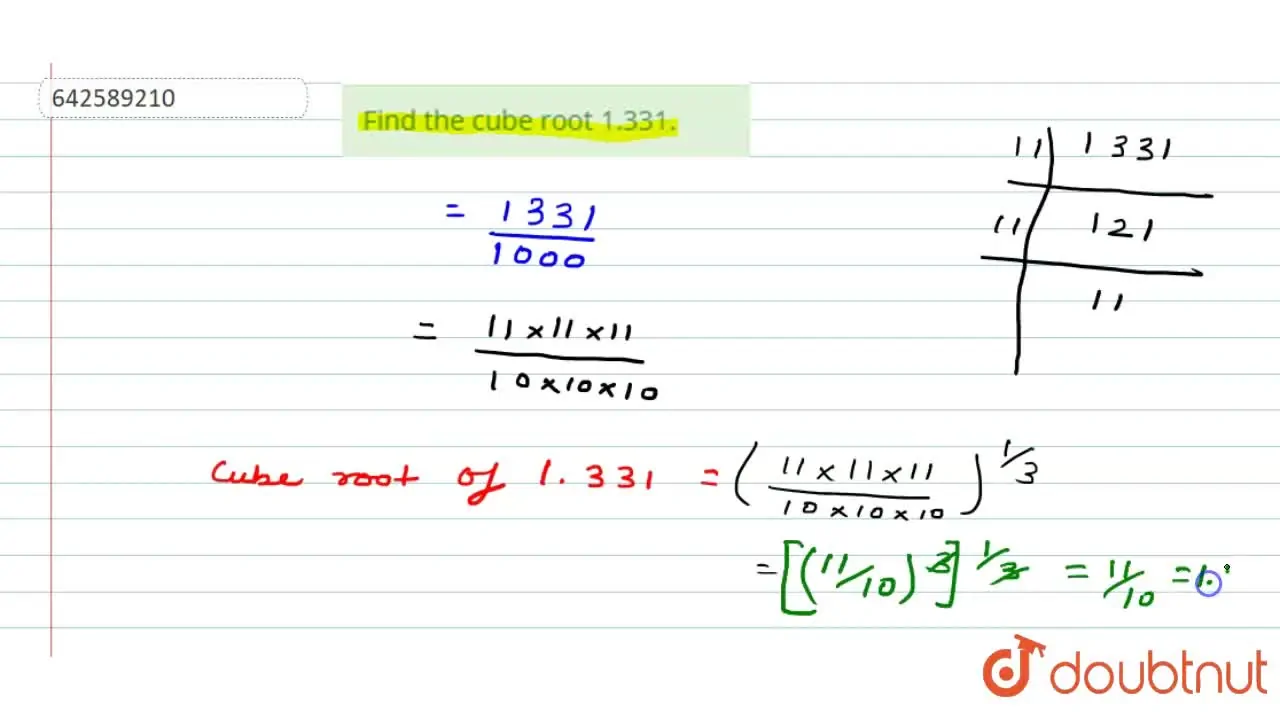 642589210
Find the cube root 1.331.
= 1331/1000
11 | 1331
11 | 121
11
= 11×11×11/10×10×10
Cube root of 1.331 = (11×11×11/10×10×10)^1/3
= [(11/10)^3]^1/3 = 11/10 = 1.
doubtnut